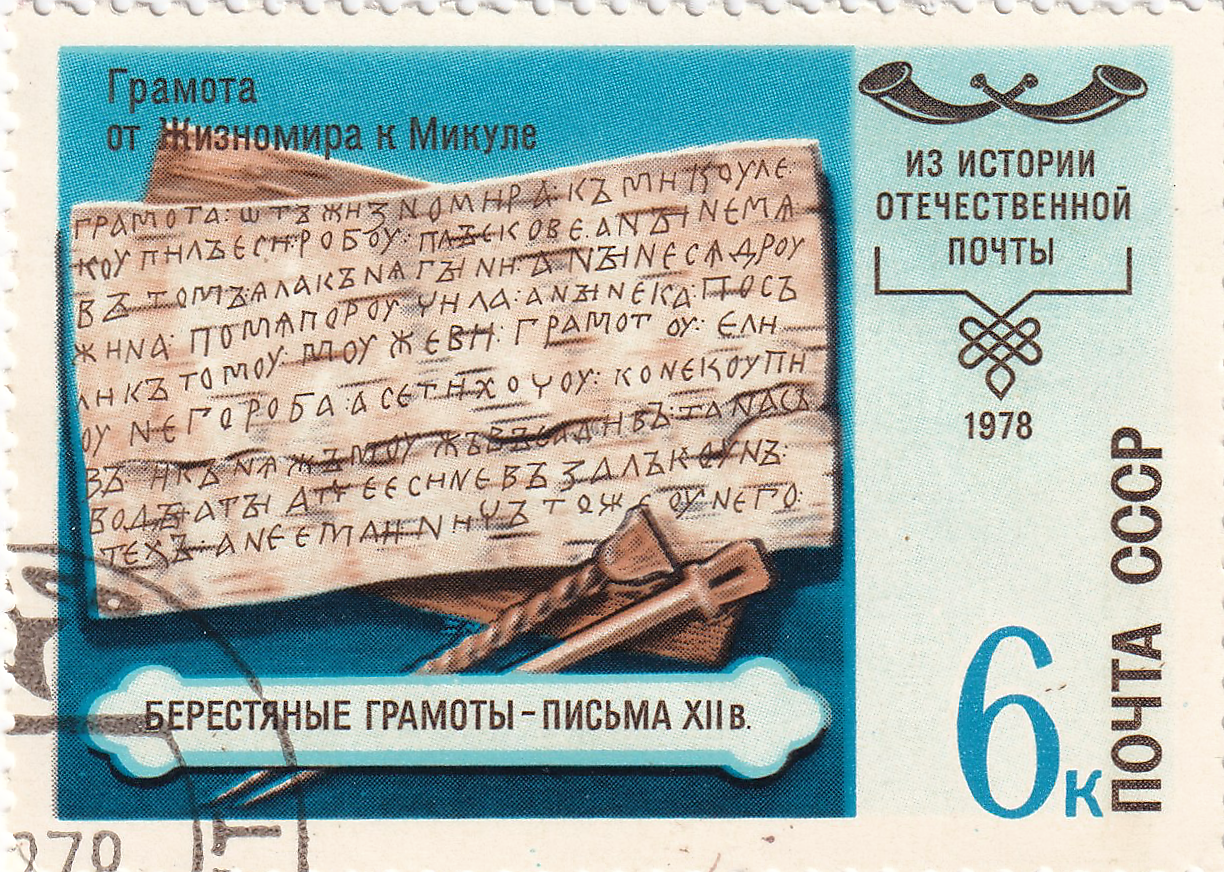 Грамота
от Жизномира к Микуле
ГРАМОТА: ѠТЪ ЖИЗНОМИРА: КЪ МИКОУЛЕ:
КОУПИЛЪ ЕСИ: РОБОУ: ПЛЪСКОВЕ: А НЫНЕ МѦ
ВЪ ТОМЪ: ѦЛА КЪНѦГЫНИ: А НЫНЕ СѦ ДРОУ
ЖИНА: ПО МѦ ПОРОУЧИЛА: А НЫНЕ КА: ПОСЪ
ЛИ КЪ ТОМОУ: МОУЖЕВИ: ГРАМОТОУ: ЕЛИ
ОУ НЕГО РОБА: А СЕ ТИ ХОЧОУ: КОНЕ КОУПИ
ВЪ: И КЪНѦЖЪ МОУЖЪ ВЪСАДИВЪ: ТА НА СЪ
ВОДЫ: А ТЫ АТЧЕ ЕСИ НЕ ВЪЗАЛЪ КОУНЪ:
ТЕХЪ: А НЕ ЕМЛИ: НИЧЪТОЖЕ ОУ НЕГО:
БЕРЕСТЯНЫЕ ГРАМОТЫ – ПИСЬМА XII в.
ИЗ ИСТОРИИ
ОТЕЧЕСТВЕННОЙ
ПОЧТЫ
1978
6к
ПОЧТА СССР